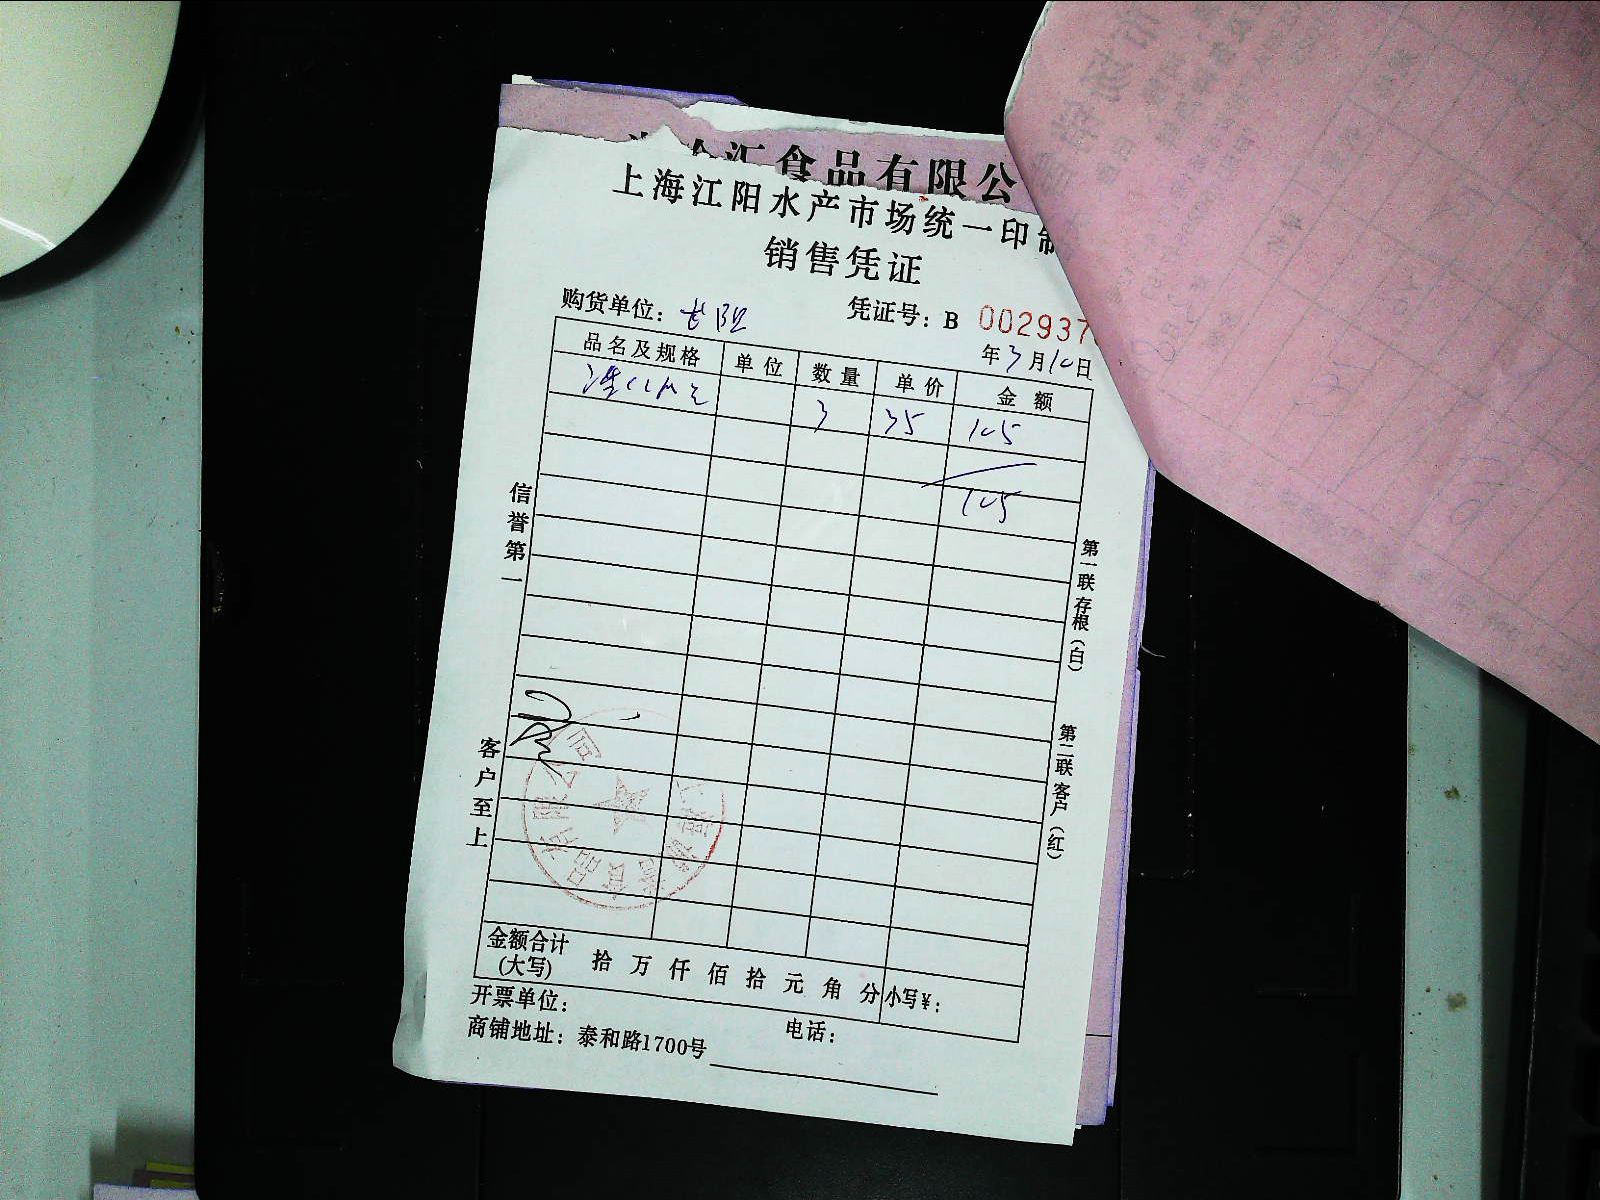 食品有限公
上海江阳水产市场统一印制
销售凭证
购货单位： 凭证号：B 002937
年3月10日
品名及规格 单位 数量 单价 金额
3 35 105
105
信誉第一
客户至上
第一联 存根（白）
第二联 客户（红）
食品有限公司
金额合计(大写) 拾 万 仟 佰 拾 元 角 分 小写￥：
开票单位： 电话：
商铺地址：泰和路1700号